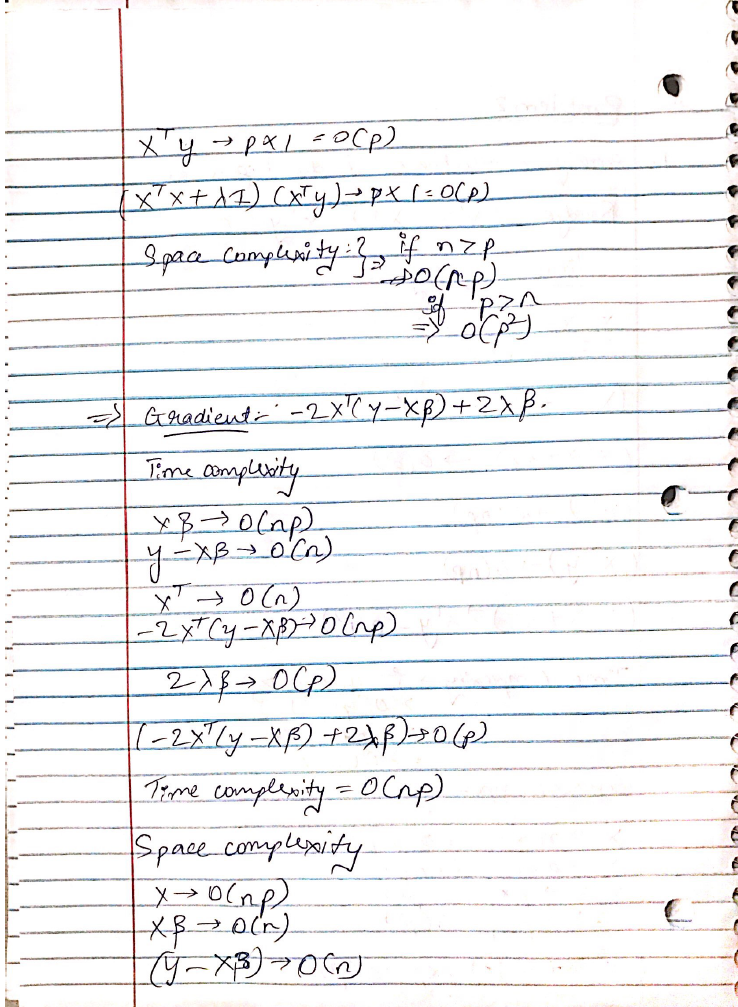 X^T y → p×1 = O(p)
(X^T X + λI) (X^T y) → p×1 = O(p)
Space complexity :} ⇒ if n>p
→ O(np)
if p>n
⇒ O(p²)
⇒ Gradient :- -2X^T(y-Xβ)+2λβ.
Time complexity
Xβ → O(np)
y-Xβ → O(n)
X^T → O(n)
-2X^T(y-Xβ) → O(np)
2λβ → O(p)
(-2X^T(y-Xβ)+2λβ) → O(p)
Time complexity = O(np)
Space complexity
X → O(np)
Xβ → O(n)
(y-Xβ) → O(n)